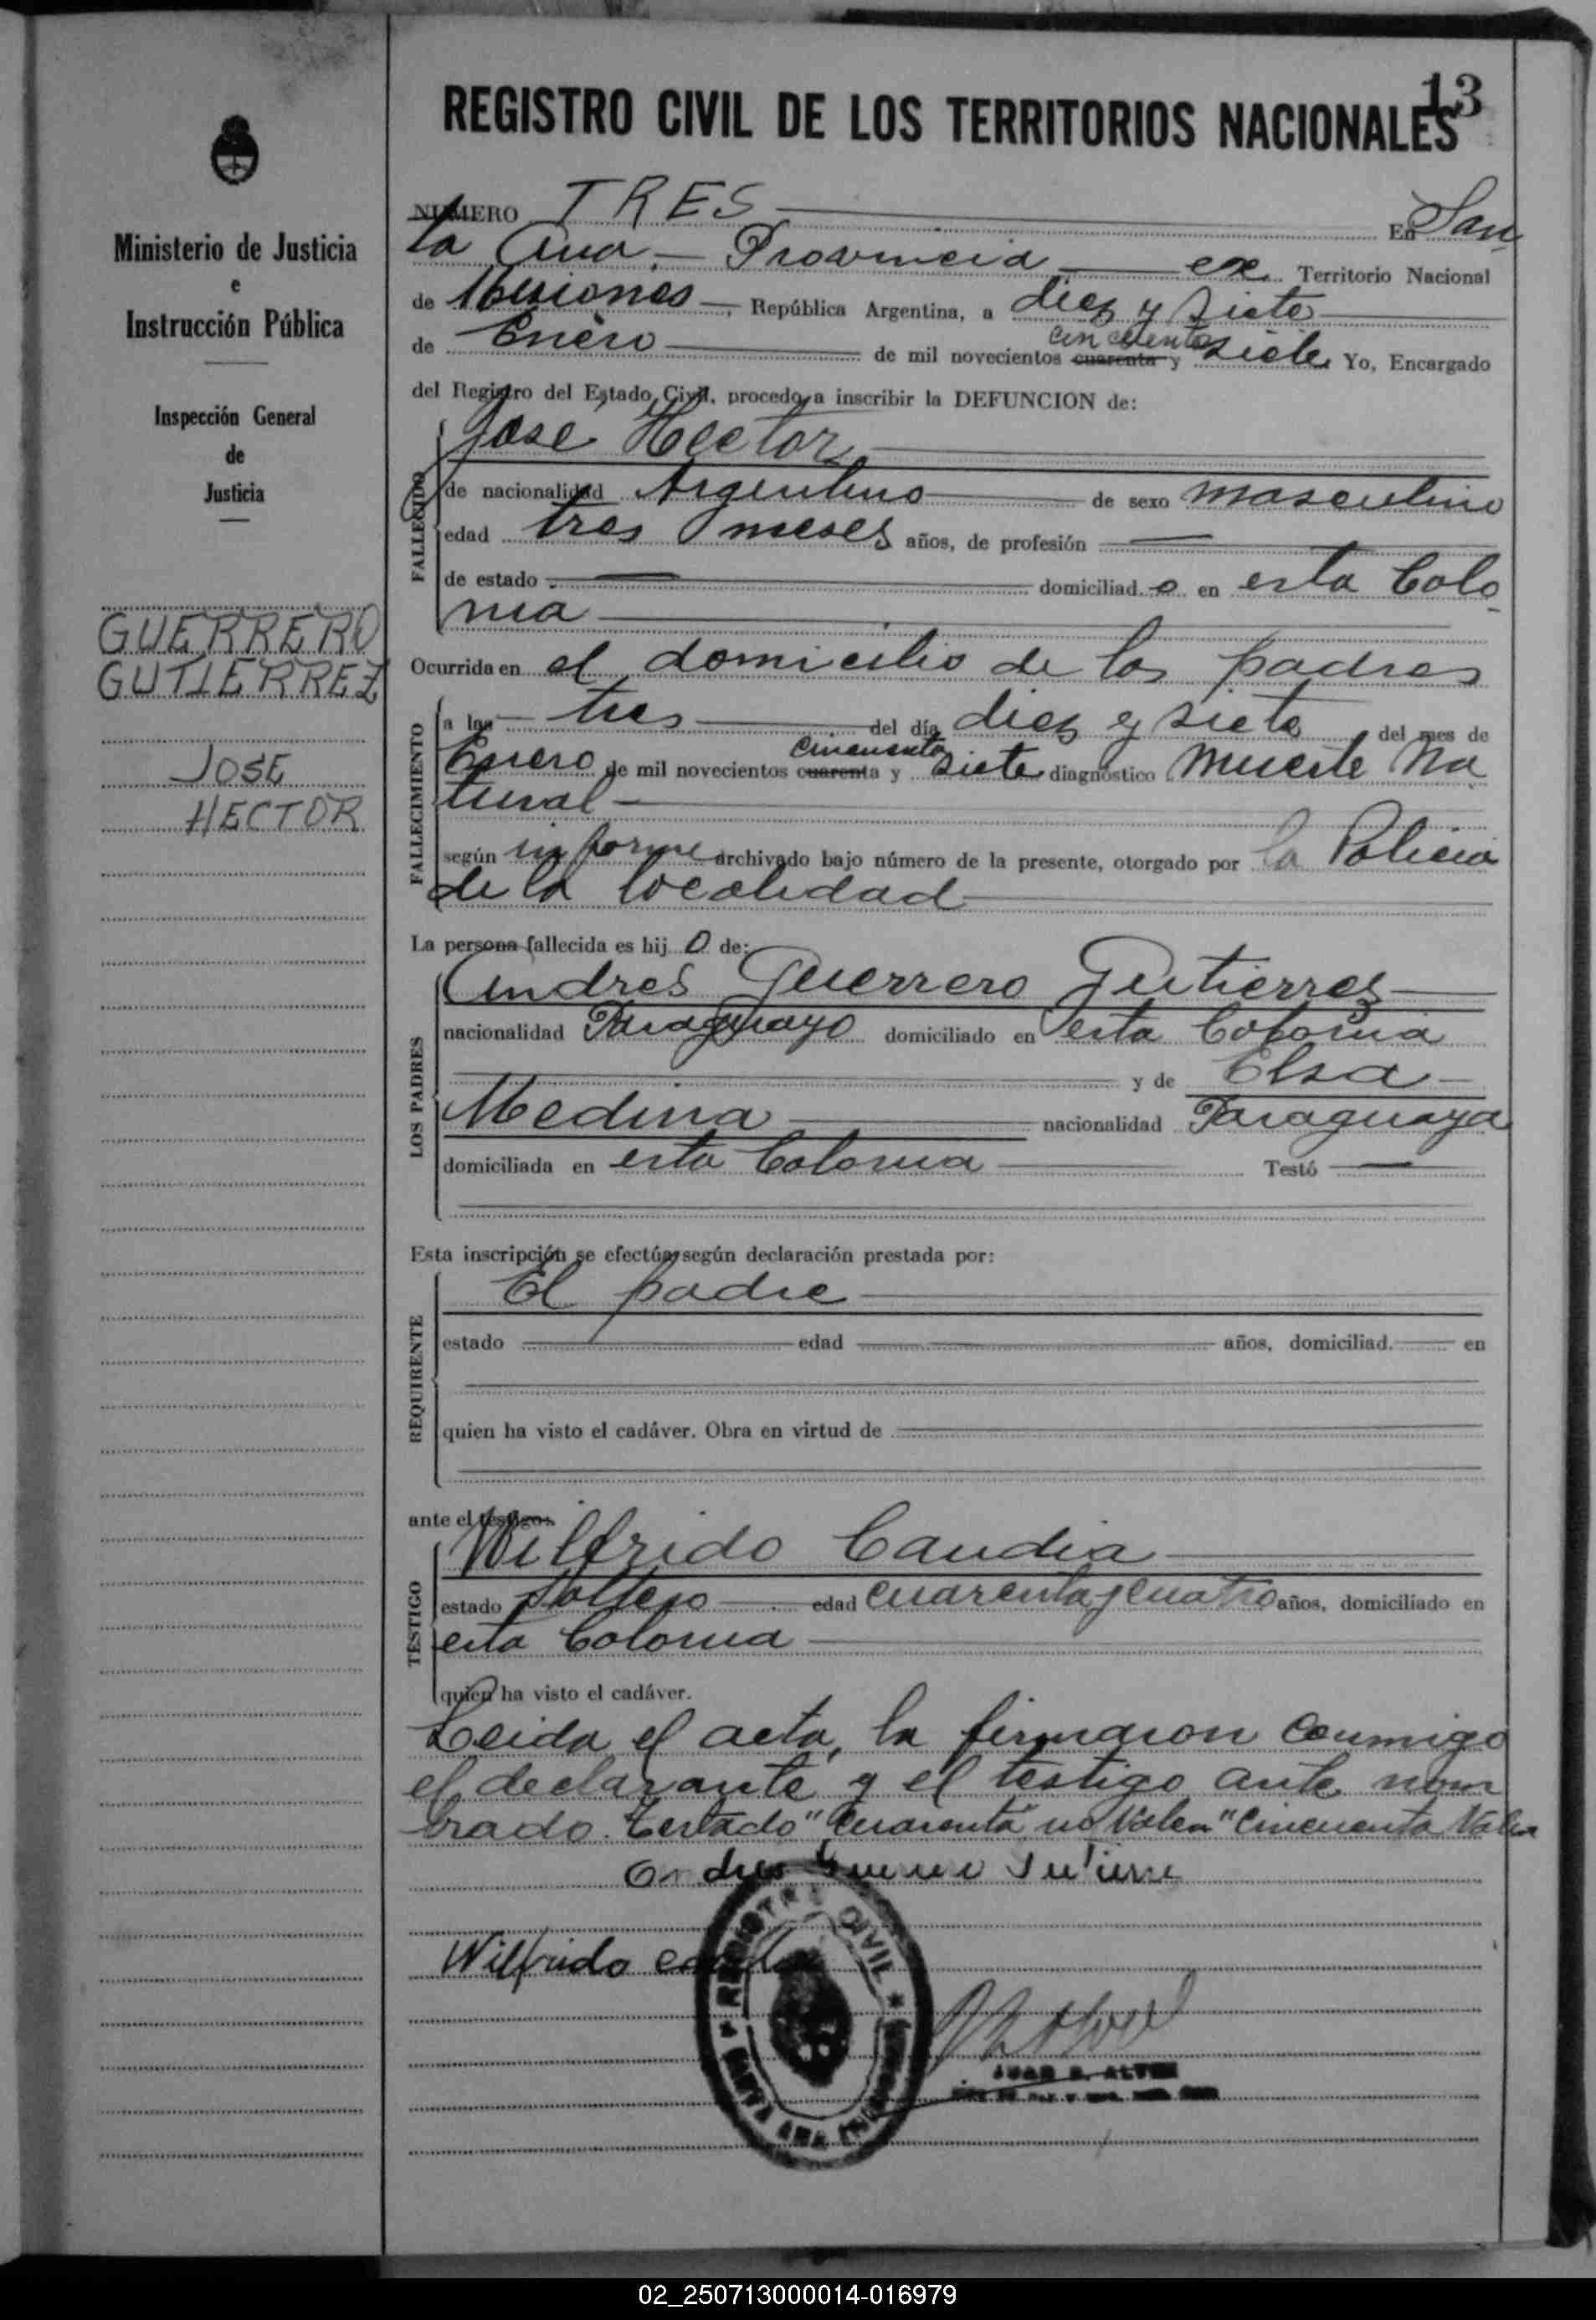 13
REGISTRO CIVIL DE LOS TERRITORIOS NACIONALES
Ministerio de Justicia
e
Instrucción Pública
Inspección General
de
Justicia
GUERRERO
GUTIERREZ
JOSE
HECTOR
NUMERO TRES En San
ta Ana.- Provincia ex Territorio Nacional
de Misiones, República Argentina, a diez y siete
de Enero de mil novecientos cuarenta cincuenta y siete Yo, Encargado
del Registro del Estado Civil, procedo a inscribir la DEFUNCION de:
FALLECIDO
José Hector
de nacionalidad Argentino de sexo masculino
edad tres meses años, de profesión —
de estado — domiciliad o en esta Colo
nia
Ocurrida en el domicilio de los padres
FALLECIMIENTO
a las tres del día diez y siete del mes de
Enero de mil novecientos cuarenta cincuenta y siete diagnóstico Muerte Na
tural
según informe archivado bajo número de la presente, otorgado por la Policia
de la localidad
La persona fallecida es hij o de:
LOS PADRES
Andres Guerrero Gutierrez
nacionalidad Paraguayo domiciliado en esta Colonia
y de Elsa
Medina nacionalidad Paraguaya
domiciliada en esta Colonia Testó —
Esta inscripción se efectúa según declaración prestada por:
REQUIRENTE
El padre
estado — edad — años, domiciliad. — en
quien ha visto el cadáver. Obra en virtud de
ante el testigos
TESTIGO
Wilfrido Candia
estado soltero edad cuarenta y cuatro años, domiciliado en
esta Colonia
quien ha visto el cadáver.
Leida el acta, la firmaron conmigo
el declarante y el testigo ante nom
brado. Testado "Cuarenta" no Valen "Cincuenta Valen
Andres Guerrero Gutierre
Wilfrido
REGISTRO CIVIL
SANTA ANA
JUAN B. ALVEZ
02_250713000014-016979